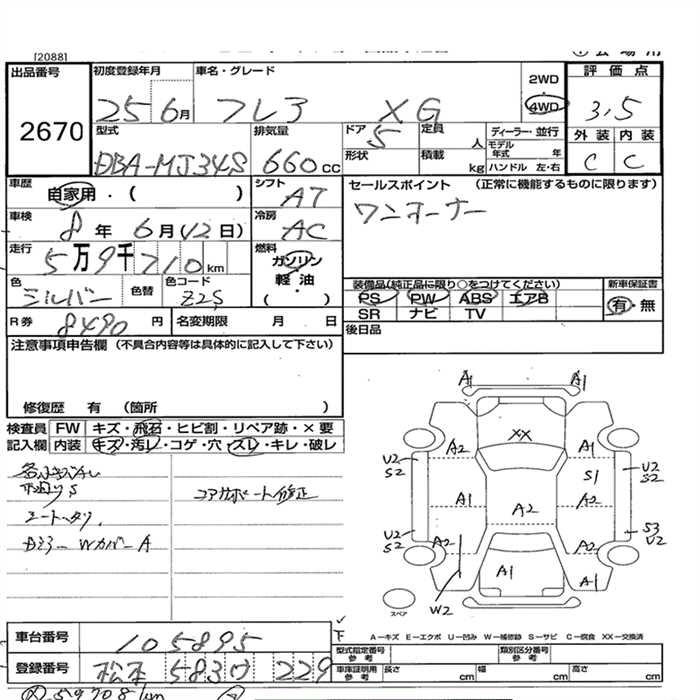 [2088]
出品番号 2670
初度登録年月 25 6月
車名・グレード フレア XG
2WD
4WD
評価点 3.5
外装 C 内装 C
型式 DBA-MJ34S
排気量 660cc
ドア 5
形状
定員 人
積載 kg
ディーラー・並行
モデル年式 年
ハンドル 左・右
車歴 自家用・( )
シフト AT
車検 8年 6月(12日)
冷房 AC
走行 5万9千710km
燃料 ガソリン
軽油
・( )
色 シルバー 色替 色コード Z2S
R券 8490円 名変期限 月 日
セールスポイント (正常に機能するものに限ります)
ワンオーナー
装備品(純正品に限り○をつけてください)
PS PW ABS エアB
SR ナビ TV
新車保証書
有・無
後日品
注意事項申告欄 (不具合内容等は具体的に記入して下さい)
修復歴 有 (箇所 )
検査員記入欄 FW キズ・飛石・ヒビ割・リペア跡・×要
内装 キズ・汚レ・コゲ・穴・スレ・キレ・破レ
コアサポート修正
Wカバー A
A1 A1
XX
A2 A1
U2 S2
S1
U2 S2
A1 A2 A2
U2 S2
A2 A2
S3 U2
A1 A1
W2
スペア
下
A−キズ E−エクボ U−凹み W−補修跡 S−サビ C−腐食 XX−交換済
車台番号 105895
登録番号 松本 583 229
型式指定番号 参考
類別区分番号 参考
車庫証明用 参考 長さ cm 幅 cm 高さ cm
59708km